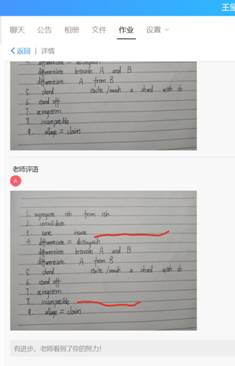 王
聊天 公告 相册 文件 作业 设置
返回 | 详情
4. differentiate = distinguish
differentiate between A and B
differentiate A from B
5. chord strike/touch a chord with sb
6. cord off
7.
8.
9. allege = claim
老师评语
A
1. segregate sth from sth
2.
3.
4. differentiate = distinguish
differentiate between A and B
differentiate A from B
5. chord strike/touch a chord with sb
6. cord off
7.
8.
9. allege = claim
有进步,老师看到了你的努力!